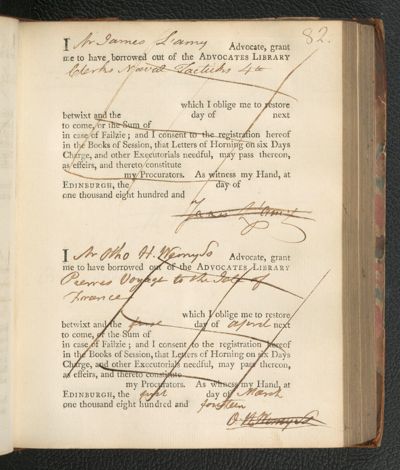 82.
I Mr James L'amy Advocate, grant
me to have borrowed out of the ADVOCATES LIBRARY
Clerks Naval Tacticks 4to
which I oblige me to restore
betwixt and the day of next
to come, or the Sum of
in case of Failzie; and I consent to the registration hereof
in the Books of Session, that Letters of Horning on six Days
Charge, and other Executorials needful, may pass thereon,
as effeirs, and thereto constitute
my Procurators. As witness my Hand, at
EDINBURGH, the day of
one thousand eight hundred and
James L'Amy
I Mr Otho H. Wemyss Advocate, grant
me to have borrowed out of the ADVOCATES LIBRARY
Voyage to the Isle of
France
which I oblige me to restore
betwixt and the first day of April next
to come, or the Sum of
in case of Failzie; and I consent to the registration hereof
in the Books of Session, that Letters of Horning on six Days
Charge, and other Executorials needful, may pass thereon,
as effeirs, and thereto constitute
my Procurators. As witness my Hand, at
EDINBURGH, the first day of March
one thousand eight hundred and fourteen
O H Wemyss